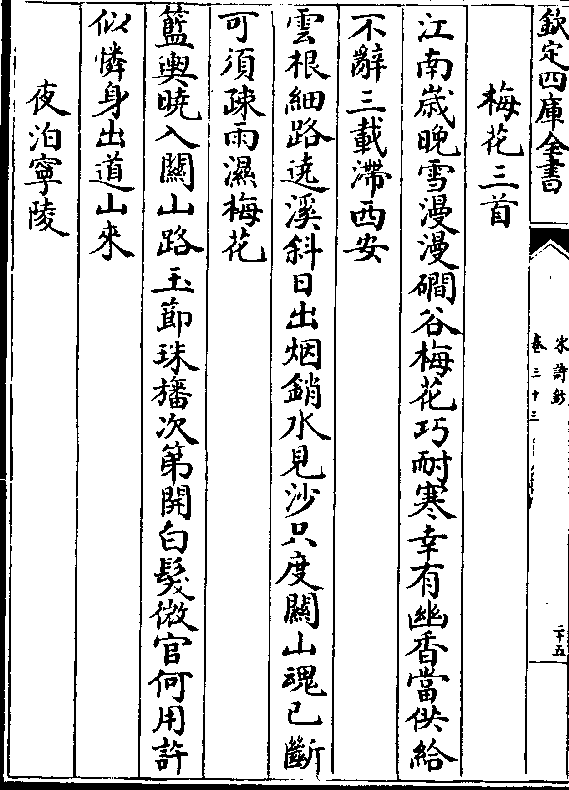 欽定四庫全書
宋詩鈔
卷三十三
二十五
梅花三首
江南歲晚雪漫漫磵谷梅花巧耐寒幸有幽香當供給
不辭三載滯西安
雲根細路遶溪斜日出烟銷水見沙只度關山魂已斷
可須疎雨濕梅花
籃輿曉入關山路玉節珠旛次第開白髮微官何用許
似憐身出道山來
夜泊寧陵